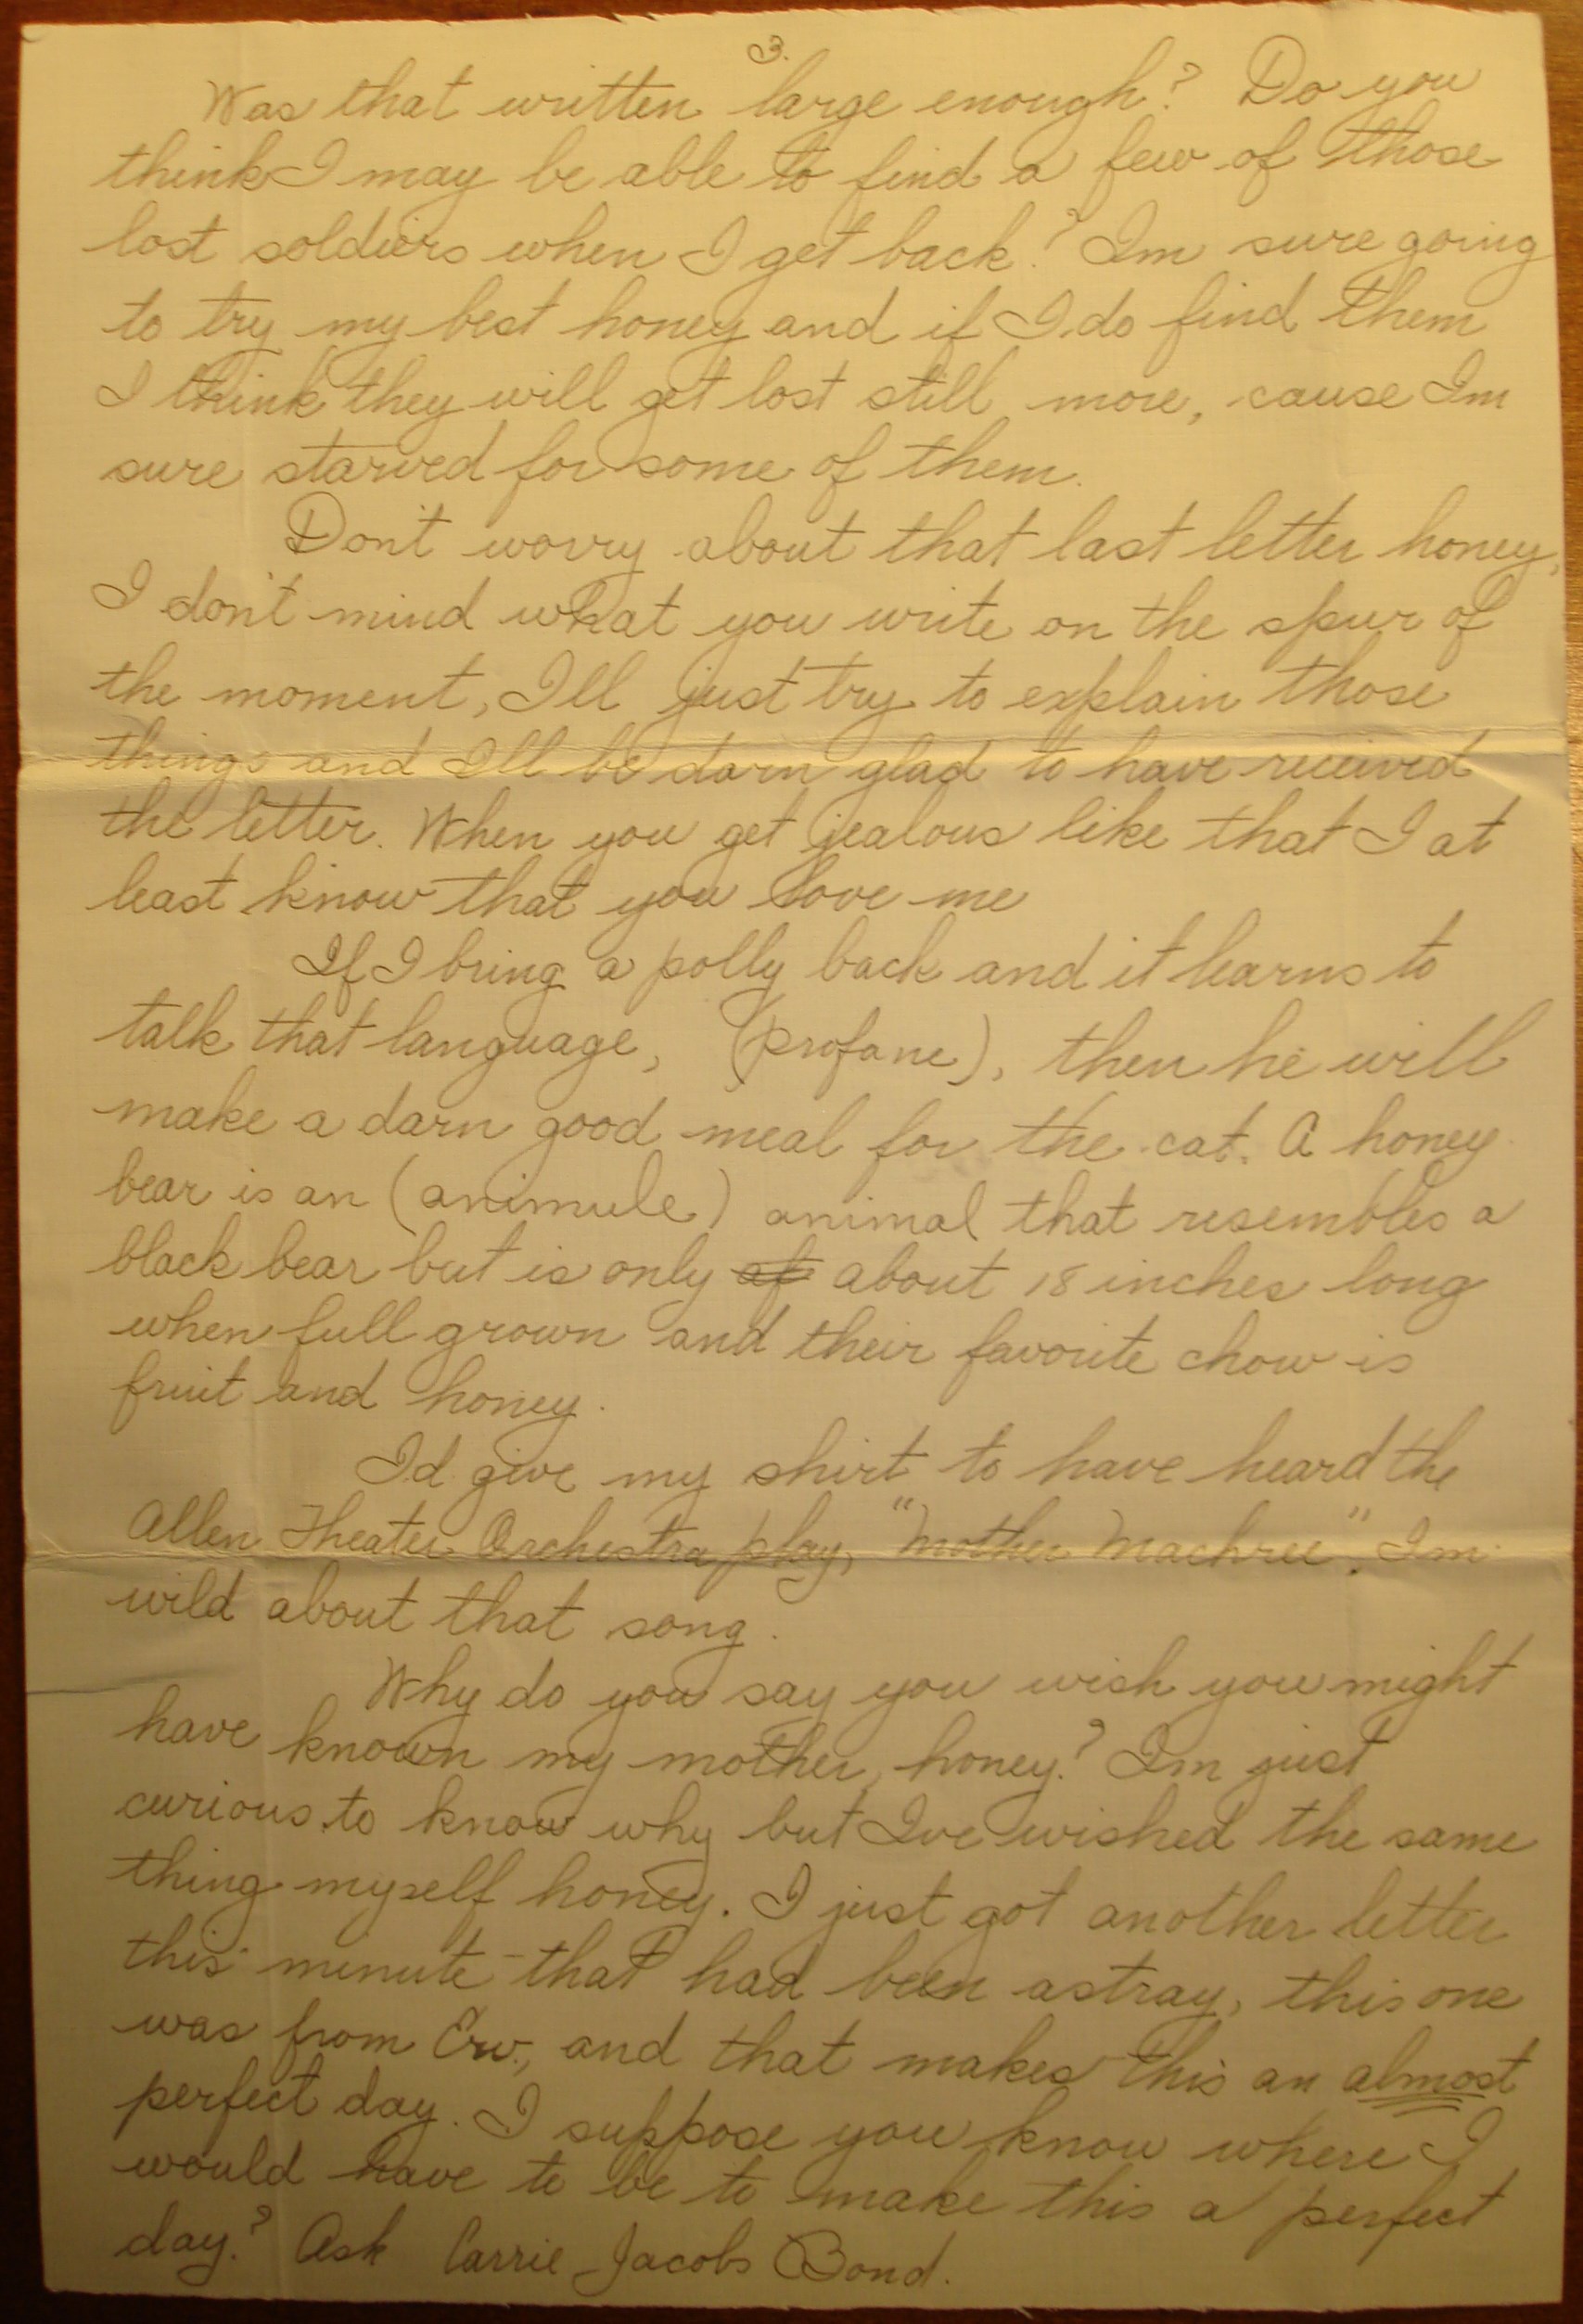 3.
Was that written large enough? Do you
think I may be able to find a few of those
lost soldiers when I get back? Im sure going
to try my best honey and if I do find them
I think they will get lost still more, cause Im
sure starved for some of them.
Don't worry about that last letter honey,
I don't mind what you write on the spur of
the moment, Ill just try to explain those
things and Ill be darn glad to have received
the letter. When you get jealous like that I at
least know that you love me
If I bring a polly back and it learns to
talk that language, (profane), then he will
make a darn good meal for the cat. A honey
bear is an (animule) animal that resembles a
black bear but is only af about 18 inches long
when full grown and their favorite chow is
fruit and honey.
Id give my shirt to have heard the
Allen Theater Orchestra play, "Mother Machree". Im
wild about that song.
Why do you say you wish you might
have known my mother, honey? Im just
curious to know why but Ive wished the same
thing myself honey. I just got another letter
this minute that had been astray, this one
was from Erv., and that makes this an almost
perfect day. I suppose you know where I
would have to be to make this a perfect
day? Ask Carrie Jacobs Bond.